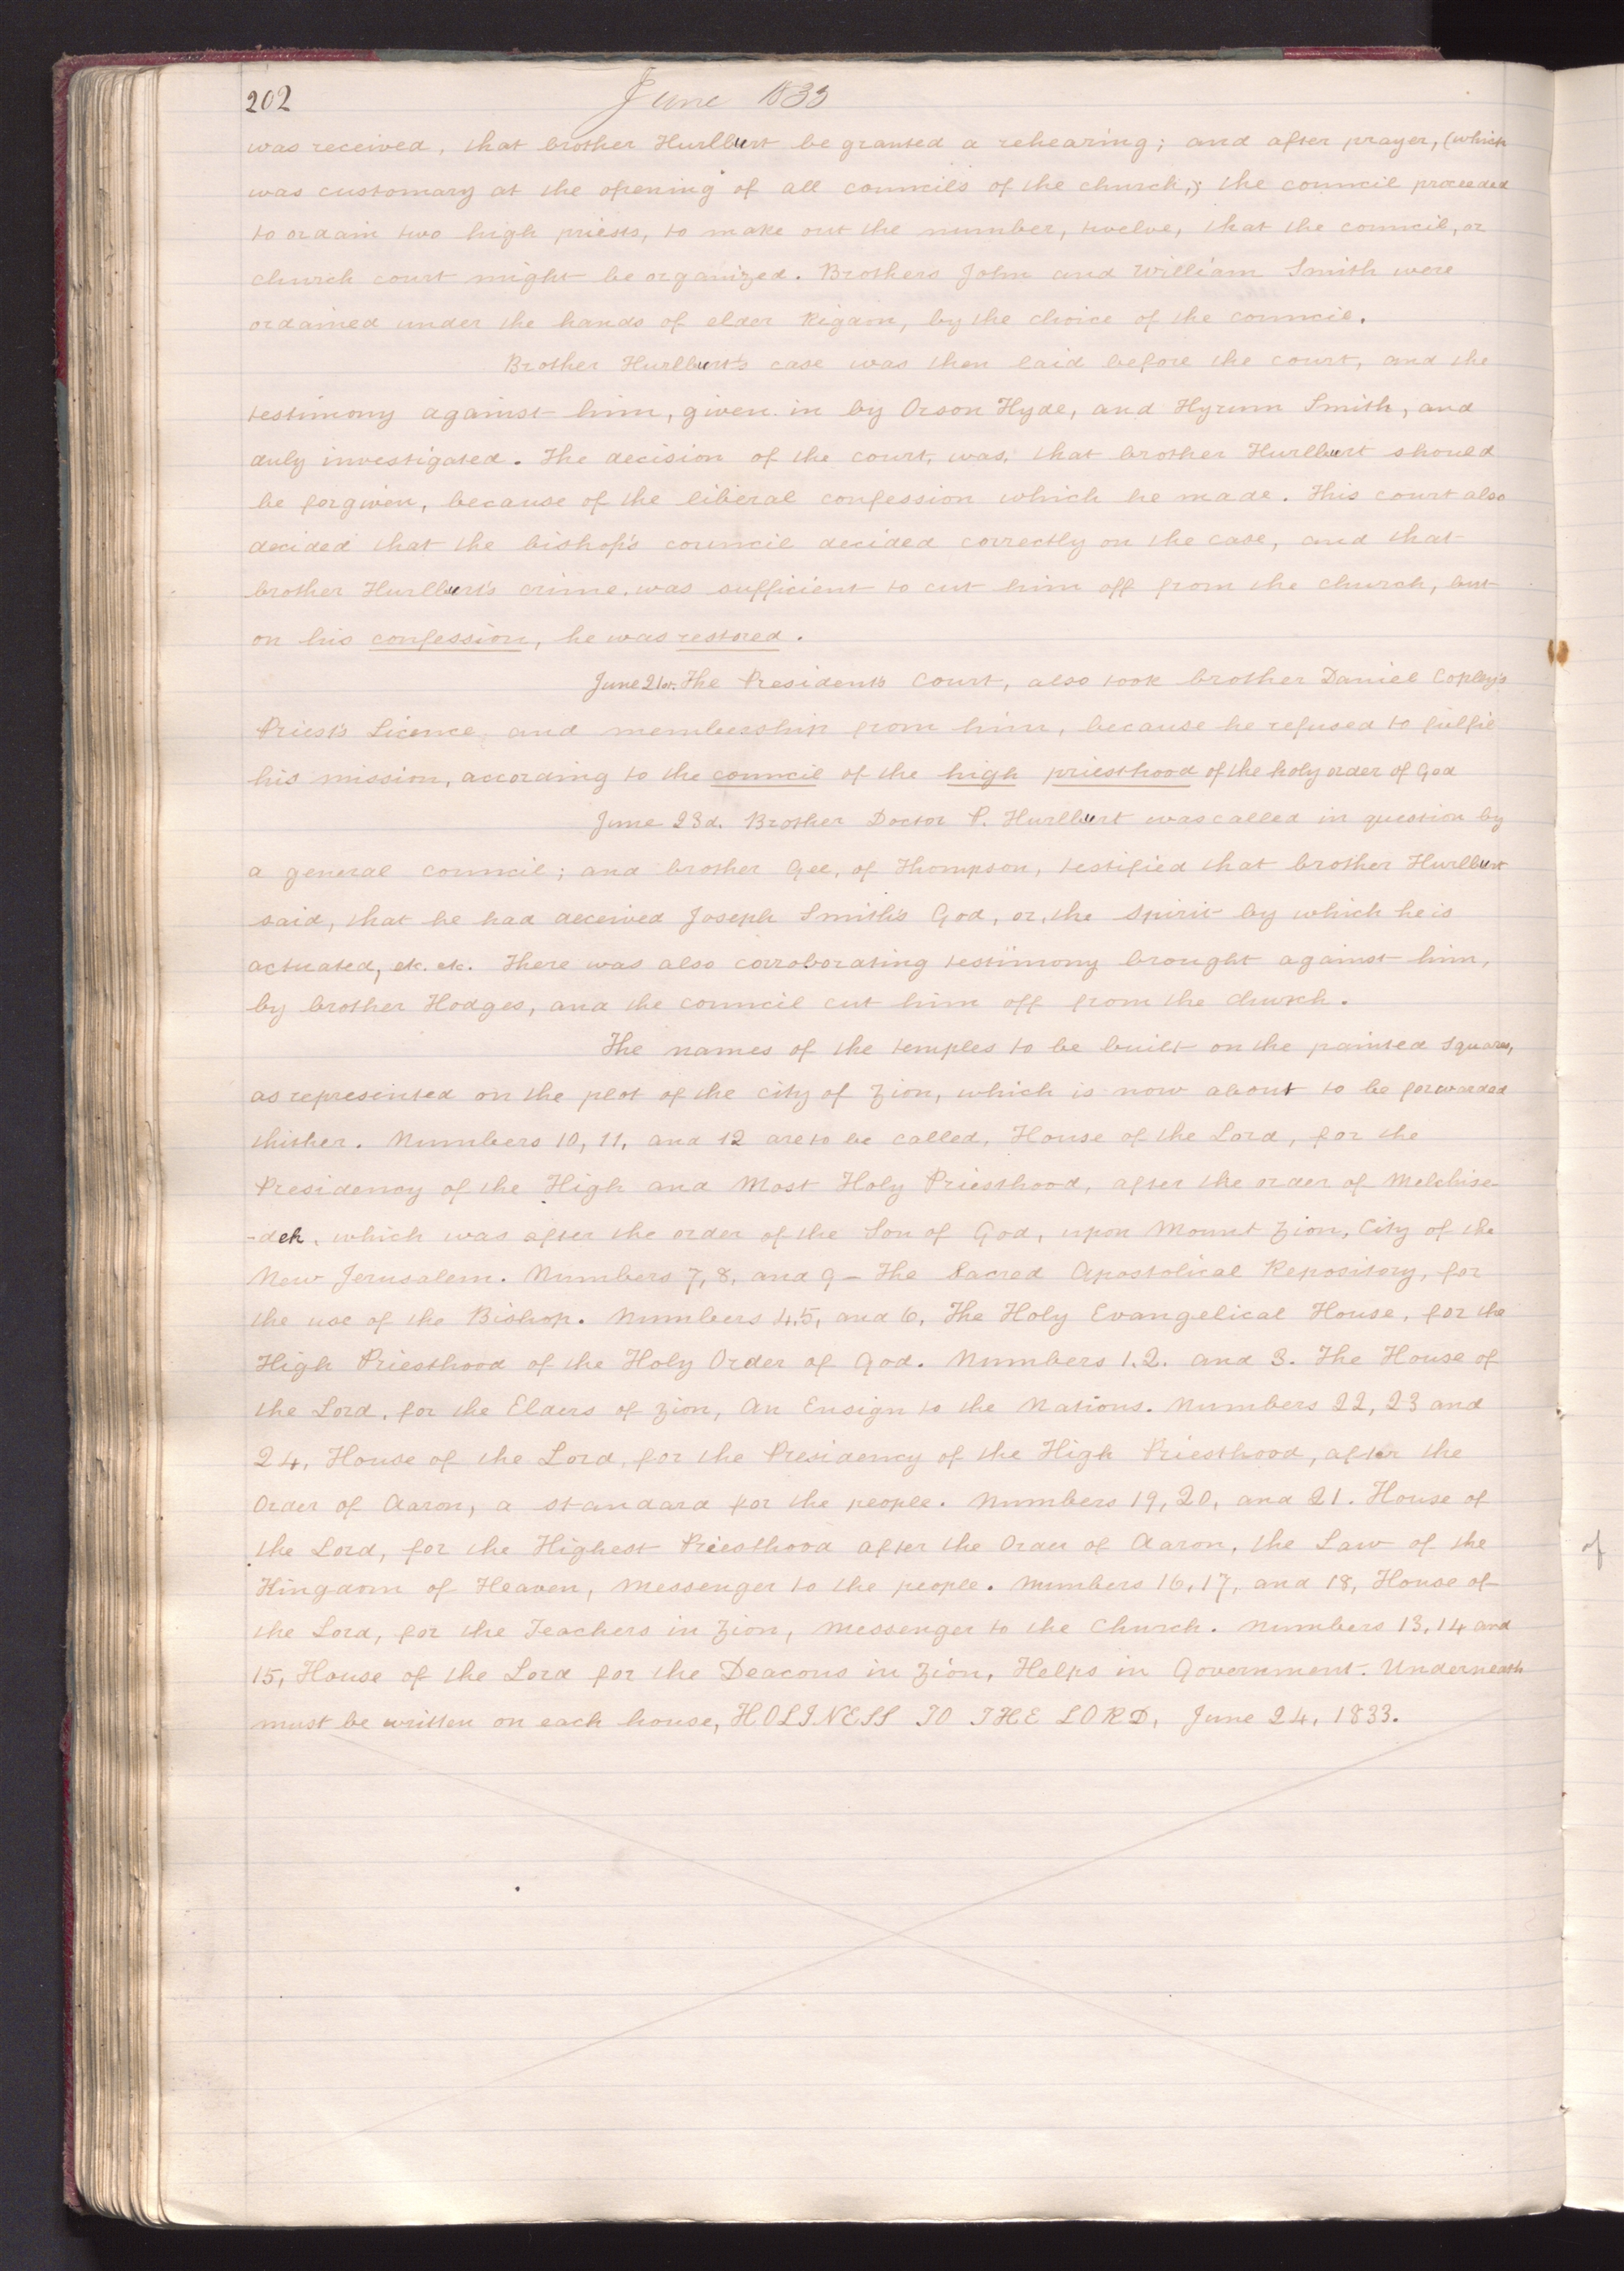 202
June 1833
was received, that brother Hurlburt be granted a rehearing; and after prayer, (which
was customary at the opening of all councils of the church,); the council proceeded
to ordain two high priests, to make out the number, twelve, that the council, or
church court might be organized. Brothers John and William Smith were
ordained under the hands of elder Rigdon, by the choice of the council.
Brother Hurlburt's case was then laid before the court, and the
testimony against him, given in by Orson Hyde, and Hyrum Smith, and
duly investigated. The decision of the court, was, that brother Hurlburt should
be forgiven, because of the liberal confession which he made. This court also
decided that the bishop's council decided correctly on the case, and that
brother Hurlburt's crime, was sufficient to cut him off from the church, but
on his confession, he was restored.
June 21st. The Presidents Court, also took brother Daniel Copley's
Priest's Licence, and membership from him, because he refused to fulfil
his mission, according to the council of the high priesthood of the holy order of God
June 23d. Brother Doctor P. Hurlburt was called in question by
a general council; and brother Gee, of Thompson, testified that brother Hurlburt
said, that he had deceived Joseph Smith's God, or, the Spirit by which he is
actuated, etc. etc. There was also corroborating testimony brought against him,
by brother Hodges, and the council cut him off from the church.
The names of the temples to be built on the painted squares,
as represented on the plot of the city of Zion, which is now about to be forwarded
thither. Numbers 10, 11, and 12 are to be called, House of the Lord, for the
Presidency of the High and Most Holy Priesthood, after the order of Melchise-
-dek, which was after the order of the Son of God, upon Mount Zion, City of the
New Jerusalem. Numbers 7, 8, and 9 – The Sacred Apostolical Repository, for
the use of the Bishop. Numbers 4, 5, and 6, The Holy Evangelical House, for the
High Priesthood of the Holy Order of God. Numbers 1. 2. and 3. The House of
the Lord, for the Elders of Zion, An Ensign to the Nations. Numbers 22, 23 and
24, House of the Lord, for the Presidency of the High Priesthood, after the
Order of Aaron, a standard for the people. Numbers 19, 20, and 21. House of
the Lord, for the Highest Priesthood after the Order of Aaron, the Law of the
Kingdom of Heaven, Messenger to the people. Numbers 16, 17, and 18, House of
the Lord, for the Teachers in Zion, Messenger to the Church. Numbers 13, 14 and
15, House of the Lord for the Deacons in Zion, Helps in Government. Underneath
must be written on each house, HOLINESS TO THE LORD, June 24, 1833.
of